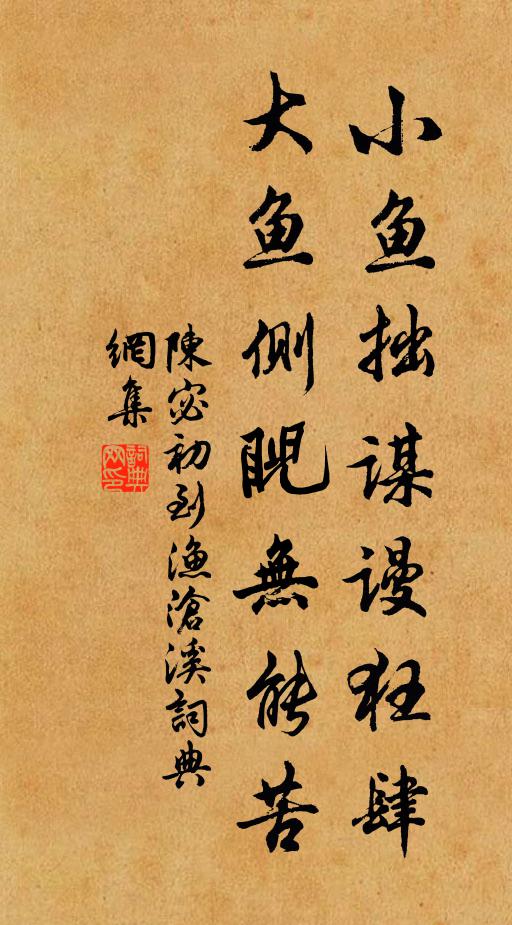 小鱼拙謀謾狂肆
大鱼側睨無能苦
陳宓初到漁滄溪詞典
網集
詞典
网印